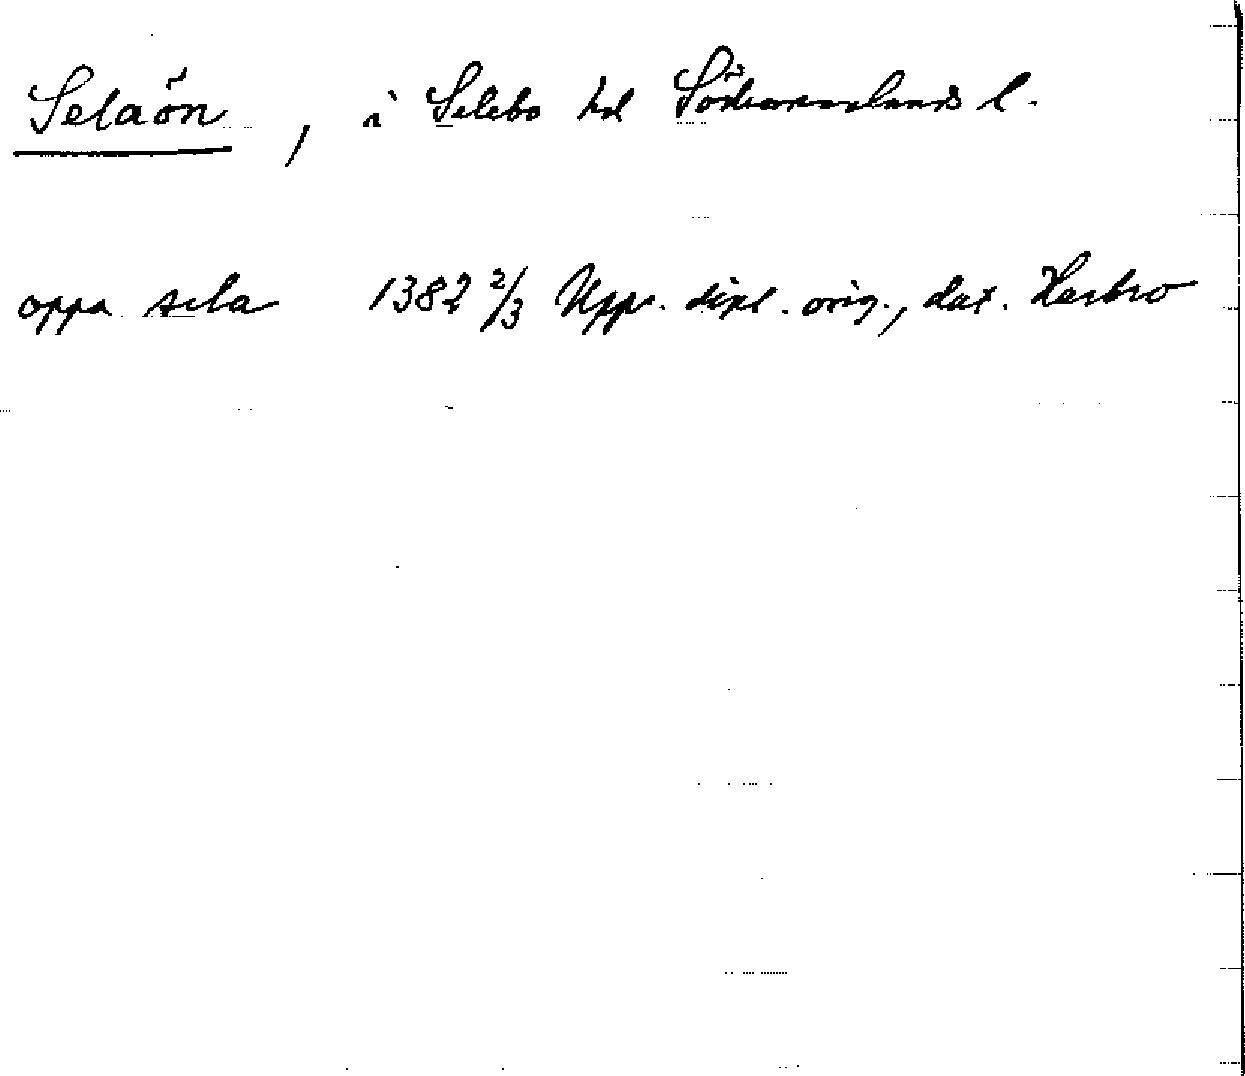 Selaön, i Selebo hd Södermanlands l.
oppa sela 1382 2/3 Upps. dipl. orig., dat. Harbro